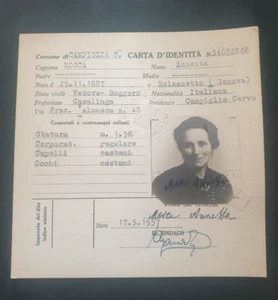 Comune di CAMPIGLIA C° CARTA D'IDENTITÀ N. 14032668
Cognome MOSCA Nome Annetta
Padre Madre
Nato il 25.11.1887 a Bolzanetto (Genova)
Stato civile Vedova Nazionalità Italiana
Professione Casalinga Residenza Campiglia Cervo
Via Fraz. n. 48
Connotati e contrassegni salienti
Statura m. 1,56
Corporat. regolare
Capelli castani
Occhi castani
Mosca Annetta
Impronta del dito
indice sinistro
Data 17.5.1957
IL SINDACO